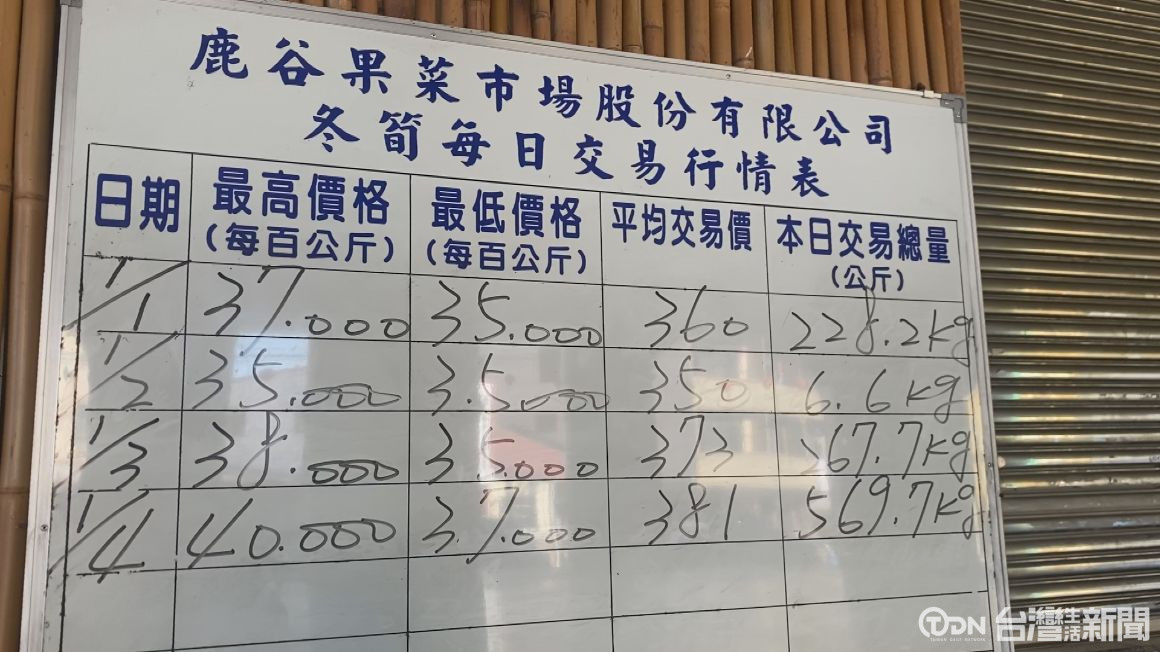 鹿谷果菜市場股份有限公司
冬筍每日交易行情表
日期 最高價格 最低價格 平均交易價 本日交易總量
(每百公斤) (每百公斤) (公斤)
1/1 37.000 35.000 360 228.2kg
1/2 35.000 3.5.000 350 6.6kg
1/3 38.000 35.000 373 267.7kg
1/4 40.000 3.7.000 381 569.7kg
TDN 台灣生活新聞